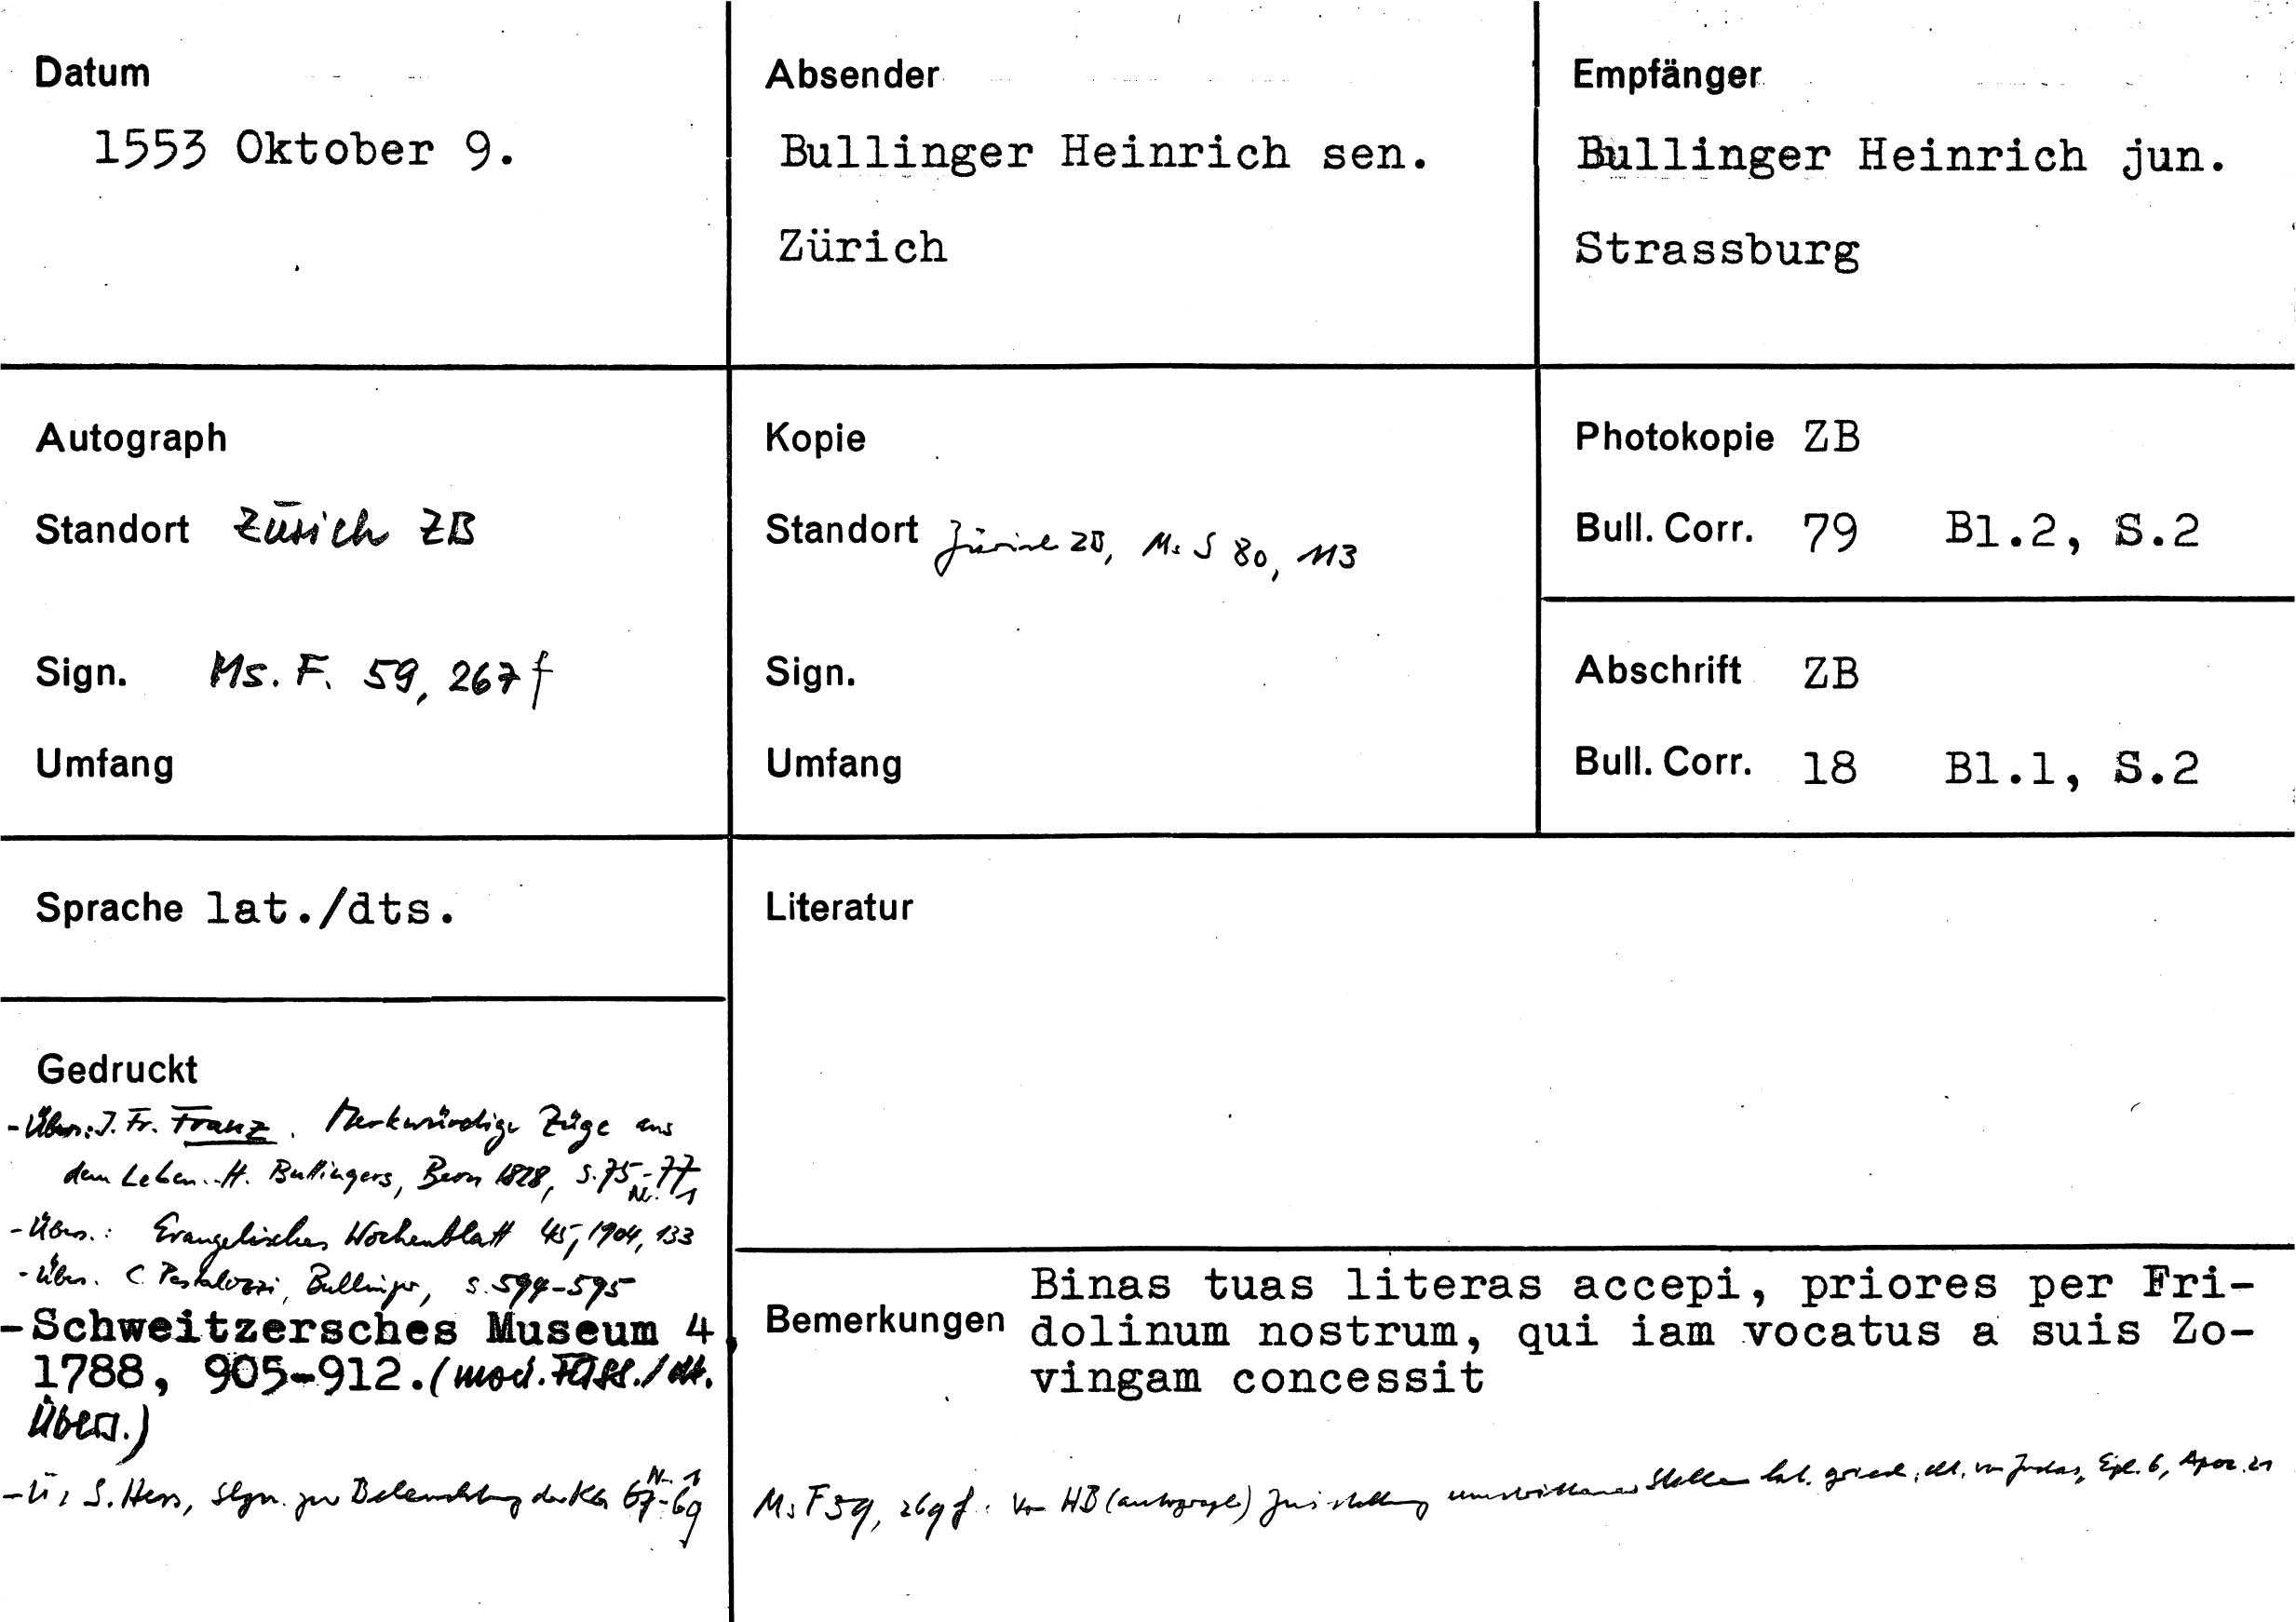 Datum
1553 Oktober 9.
Absender
Bullinger Heinrich sen.
Zürich
Empfänger
Bullinger Heinrich jun.
Strassburg
Autograph
Standort Zürich ZB
Sign. Ms. F. 59, 267 f
Umfang
Kopie
Standort Zürich ZB, Ms S 80, 113
Sign.
Umfang
Photokopie ZB
Bull. Corr. 79 Bl.2, S.2
Abschrift ZB
Bull. Corr. 18 Bl.1, S.2
Sprache lat./dts.
Literatur
Gedruckt
- Übers: J. Fr. Franz. Merkwürdige Züge aus
dem Leben.. H. Bullingers, Bern 1828, S. 75-77
Nr. 1
- Übers.: Evangelisches Wochenblatt 45, 1904, 133
- Übers. C. Pestalozzi, Bullinger, S. 594-595
-Schweitzersches Museum 4,
1788, 905-912. (mod. Fass. / dt.
Übers.)
- Ü: S. Hess, Slgn. zur Beleuchtung der KG Nr. 1 67-69
Bemerkungen
Binas tuas literas accepi, priores per Fri-
dolinum nostrum, qui iam vocatus a suis Zo-
vingam concessit
Ms F 59, 269 f: von HB (autograph) Stellen lat. griech. von Judas, Eph. 6, Apoc. 21